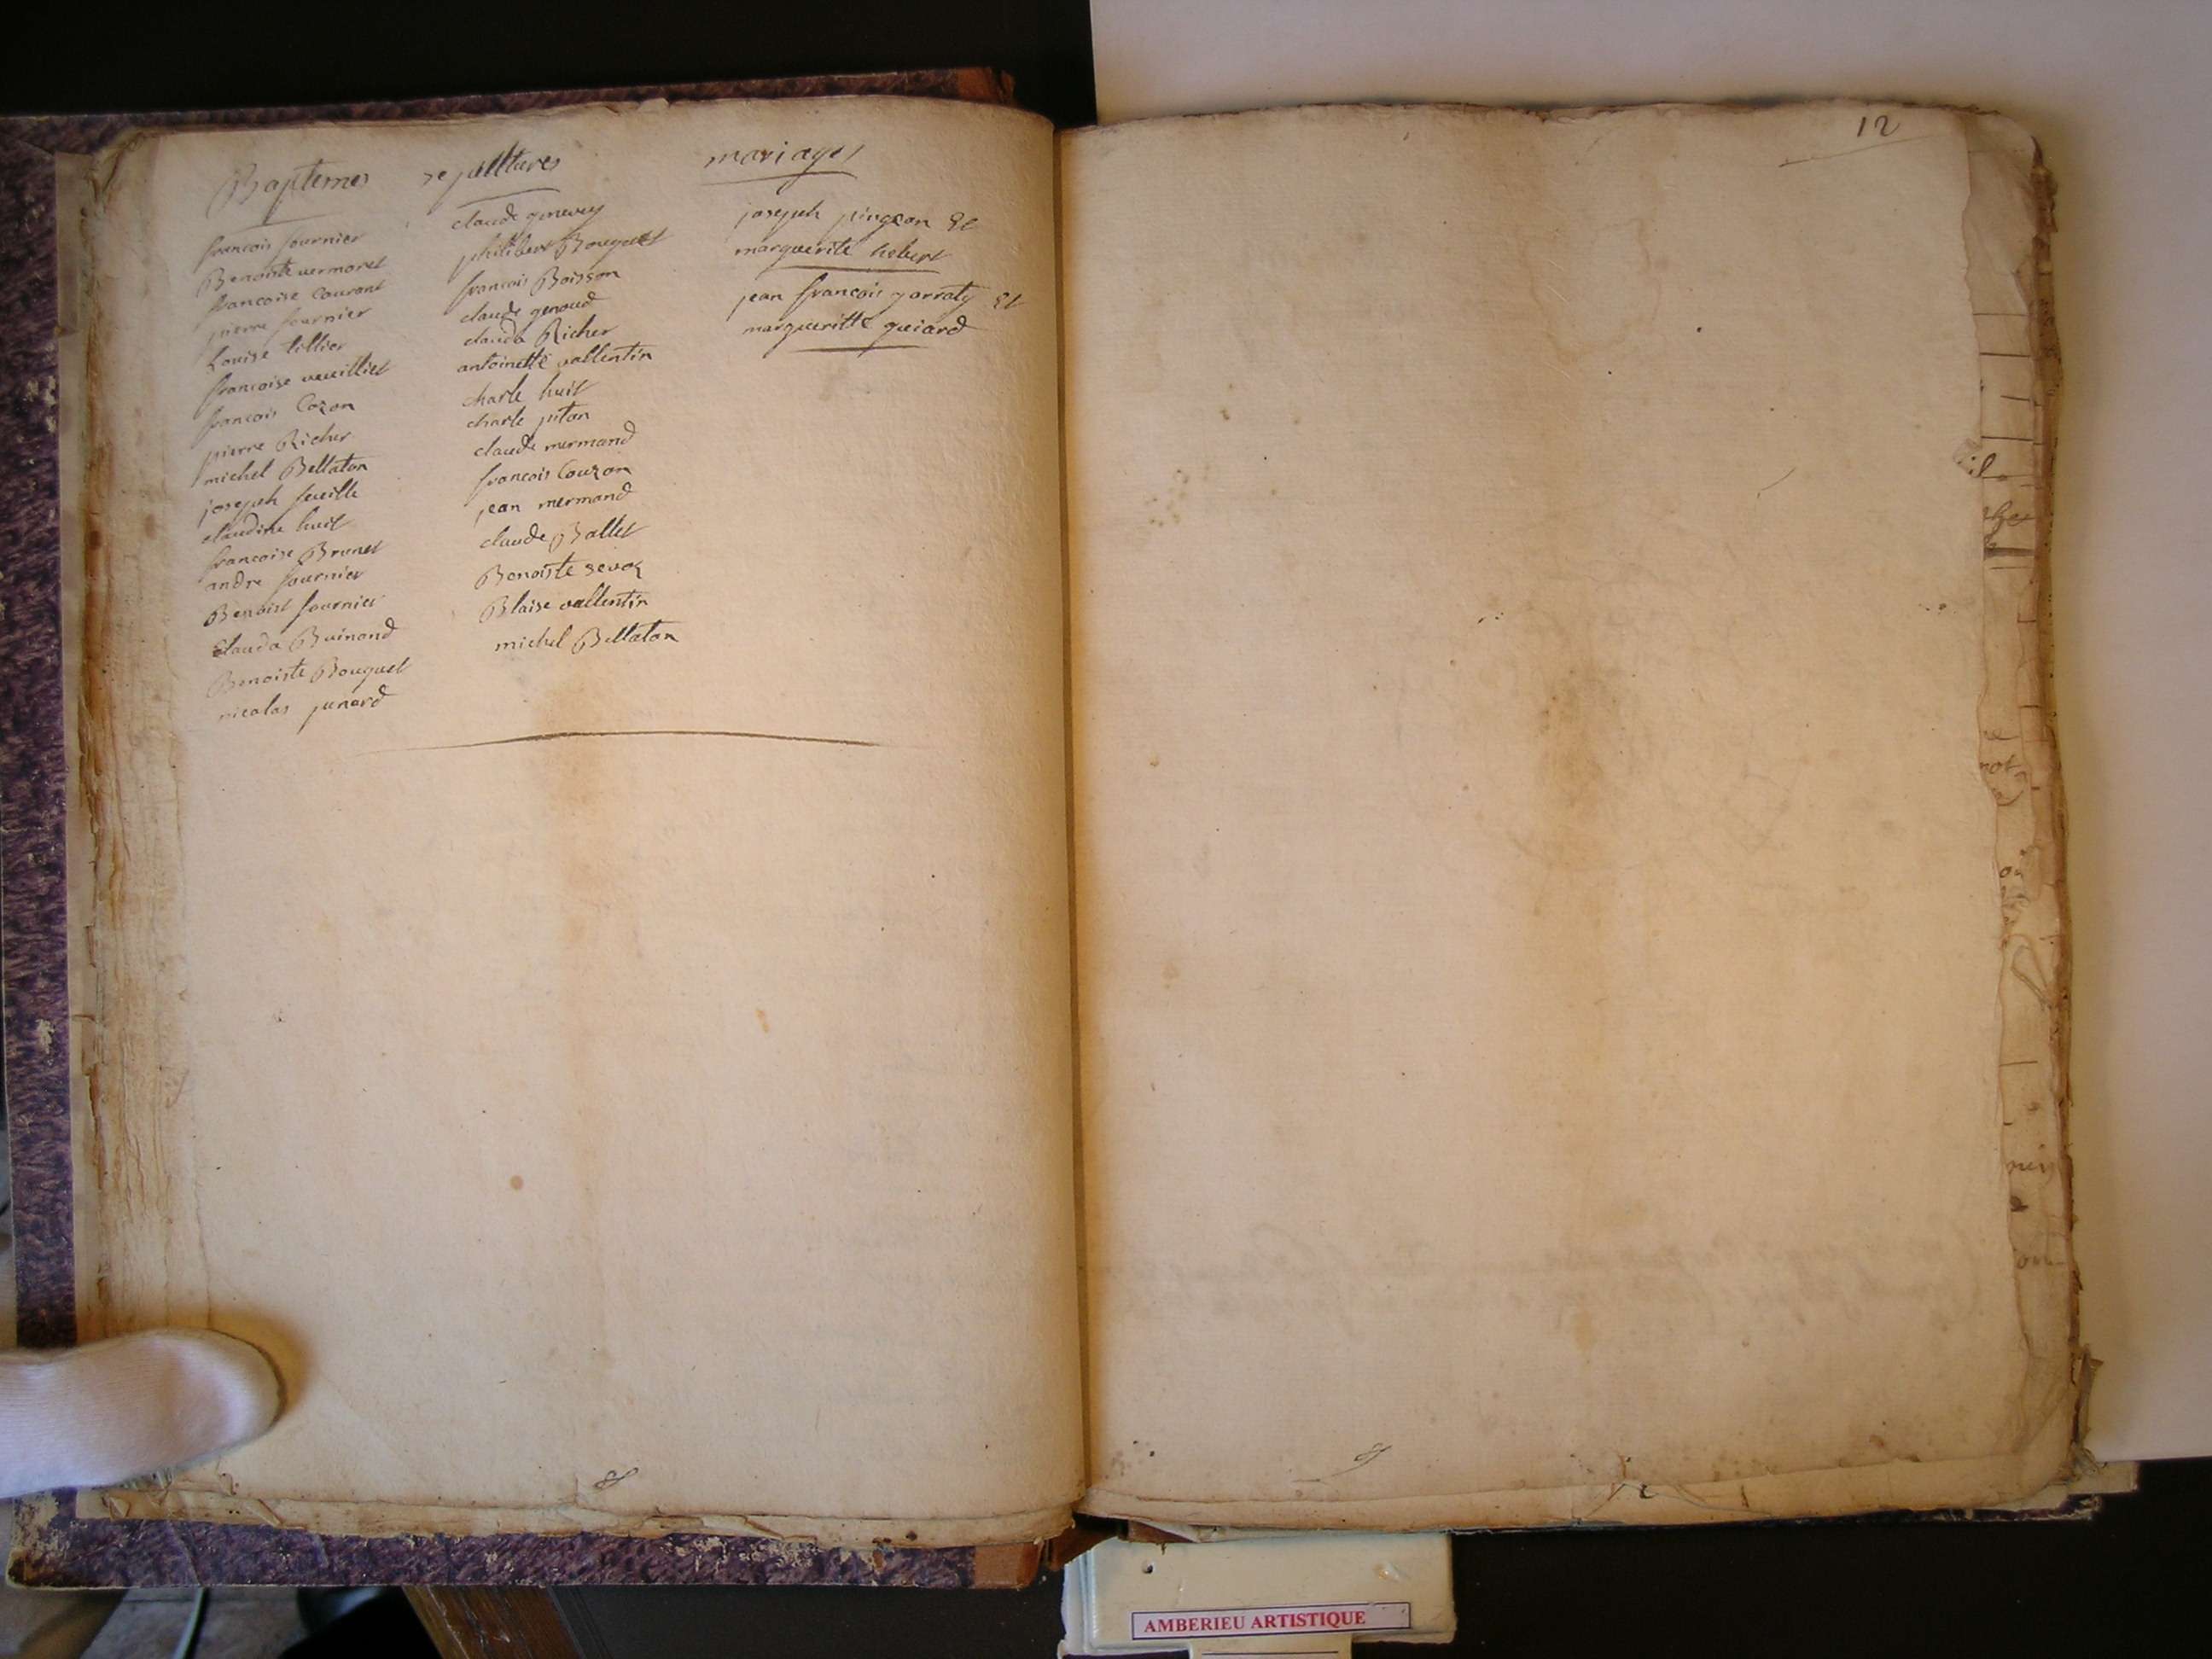 Baptemes
francois fournier
Benoiste vermoret
francoise Courant
pierre fournier
Louise tillier
francoise
francois Cozon
pierre Richer
michel Bellaton
joseph feuille
claudine huit
francoise Brunet
andre fournier
Benoist fournier
Clauda Buinond
Benoiste Bouquet
nicolas junard
sepulttures
claude genevey
philibert Bouquet
francois Boisson
claude genoud
clauda Richer
antoinette vallentin
charle huit
charle piton
claude mermand
francois Couzon
jean mermand
claude Ballet
Benoiste sevoz
Blaise vallentin
michel Bellaton
mariages
joseph pingeon Et
marguerite hebert
jean francois Et
margueritte guiard
12
AMBERIEU ARTISTIQUE